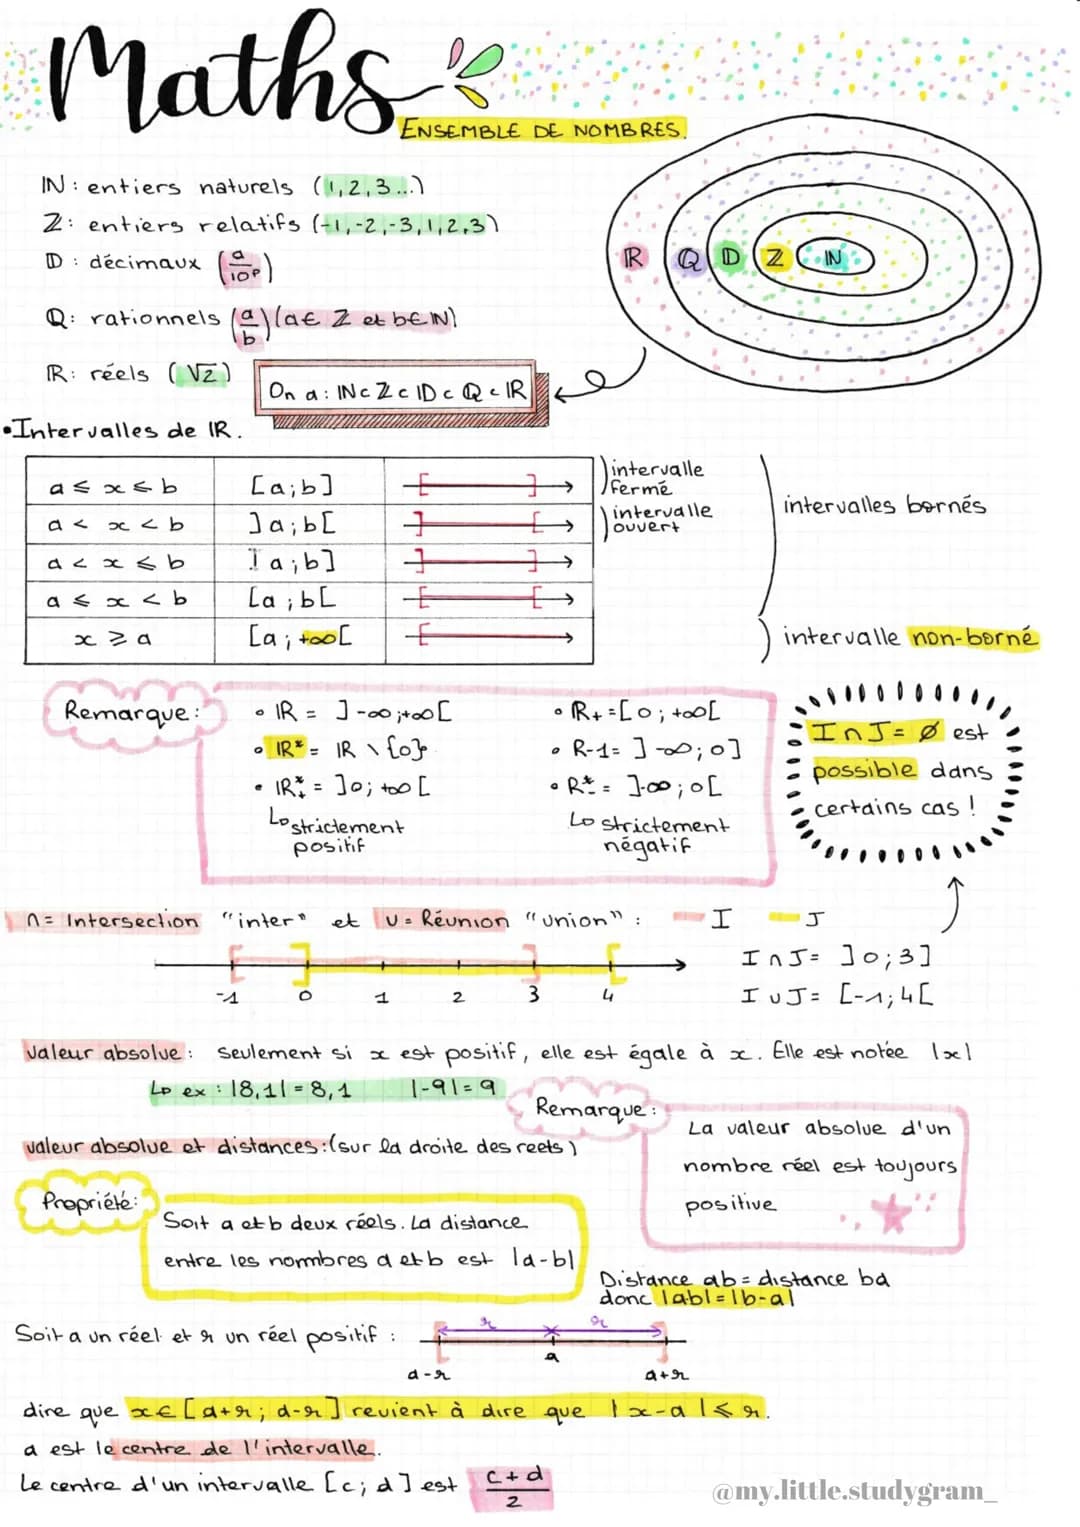 Maths
ENSEMBLE DE NOMBRES.
ℕ : entiers naturels (1,2,3...)
ℤ : entiers relatifs (-1,-2,-3,1,2,3)
𝔻 : décimaux (a/10ᵖ)
ℚ : rationnels (a/b) (a∈ ℤ et b∈ℕ)
ℝ : réels (√2)
ℝ ℚ 𝔻 ℤ ℕ
On a : ℕ⊂ℤ⊂𝔻⊂ℚ⊂ℝ
•Intervalles de ℝ.
a ≤ x ≤ b [a;b]
intervalle
fermé
a < x < b ]a;b[
intervalle
ouvert
a < x ≤ b ]a;b]
a ≤ x < b [a;b[
x ≥ a [a;+∞[
intervalles bornés
intervalle non-borné
Remarque:
• ℝ = ]-∞;+∞[
• ℝ* = ℝ \ {0}
• ℝ*₊ = ]0;+∞[
↳strictement
positif
• ℝ₊ =[0;+∞[
• R-1= ]-∞;0]
• R*₋ = ]-∞;0[
↳ strictement
négatif
I∩J= Ø est
possible dans
certains cas !
∩= Intersection "inter" et ∪= Réunion "union" : I J
-1 0 1 2 3 4
I∩J= ]0;3]
I∪J= [-1;4[
valeur absolue : seulement si x est positif, elle est égale à x. Elle est notée |x|
↳ ex : |8,1|= 8,1 |-9|= 9
Remarque:
La valeur absolue d'un
nombre réel est toujours
positive
valeur absolue et distances:(sur la droite des reels)
Propriété:
Soit a et b deux réels. La distance
entre les nombres a et b est |a-b|
Distance ab = distance ba
donc |ab|=|b-a|
Soit a un réel et r un réel positif :
r r
a
a-r a+r
dire que x∈[a+r; a-r] revient à dire que |x-a|≤ r.
a est le centre de l'intervalle.
Le centre d'un intervalle [c;d] est (c+d)/2
@my.little.studygram_